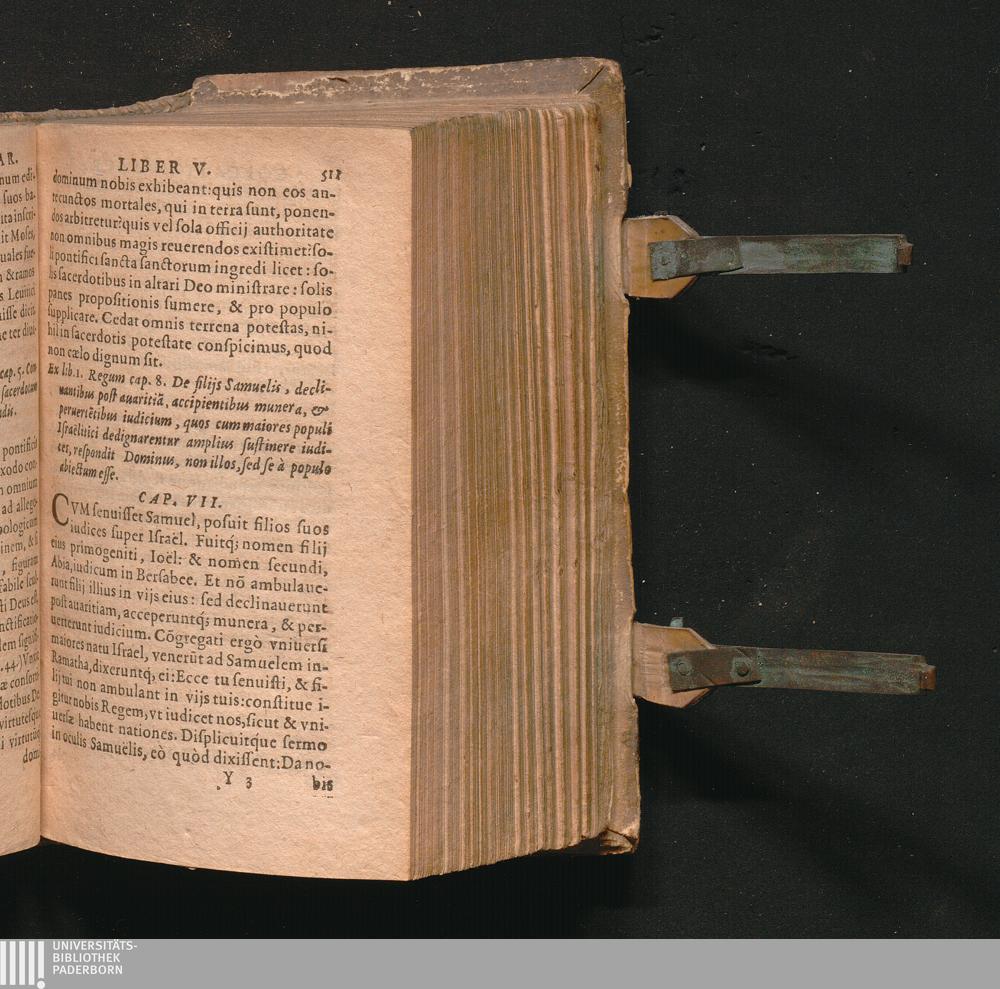 AR.
num edi-
suos ba-
ita inscri-
it Moses,
& ramos
s Leuitici
cap. 5. Con
sacerdotum
pontificis
xodo con-
omnium
ad allego-
pologicum
figuram
fabile
sti Deus est,
. 44.) Vnxit
virtutesque
i virtutis
dom
LIBER V. 511
dominum nobis exhibeant: quis non eos an-
te cunctos mortales, qui in terra sunt, ponen-
dos arbitretur? quis vel sola officij authoritate
non omnibus magis reuerendos existimet? so-
li pontifici sancta sanctorum ingredi licet: so-
lis sacerdotibus in altari Deo ministrare: solis
panes propositionis sumere, & pro populo
supplicare. Cedat omnis terrena potestas, ni-
hil in sacerdotis potestate conspicimus, quod
non cælo dignum sit.
Ex lib. 1. Regum cap. 8. De filijs Samuelis, decli-
nantibus post auaritiã, accipientibus munera, &
peruertẽtibus iudicium, quos cum maiores populi
Israëlitici dedignarentur amplius sustinere iudi-
ces, respondit Dominus, non illos, sed se à populo
abiectum esse.
CAP. VII.
CVM senuisset Samuel, posuit filios suos
iudices super Israël. Fuitq; nomen filij
eius primogeniti, Ioël: & nomen secundi,
Abia, iudicum in Bersabee. Et nõ ambulaue-
runt filij illius in vijs eius: sed declinauerunt
post auaritiam, acceperuntq; munera, & per-
uerterunt iudicium. Cõgregati ergò vniuersi
maiores natu Israel, venerũt ad Samuelem in
Ramatha, dixeruntq; ei: Ecce tu senuisti, & fi-
lij tui non ambulant in vijs tuis: constitue i-
gitur nobis Regem, vt iudicet nos, sicut & vni-
uersæ habent nationes. Displicuitque sermo
in oculis Samuëlis, eò quòd dixissent: Da no-
Y 3 bis
UNIVERSITÄTS-
BIBLIOTHEK
PADERBORN